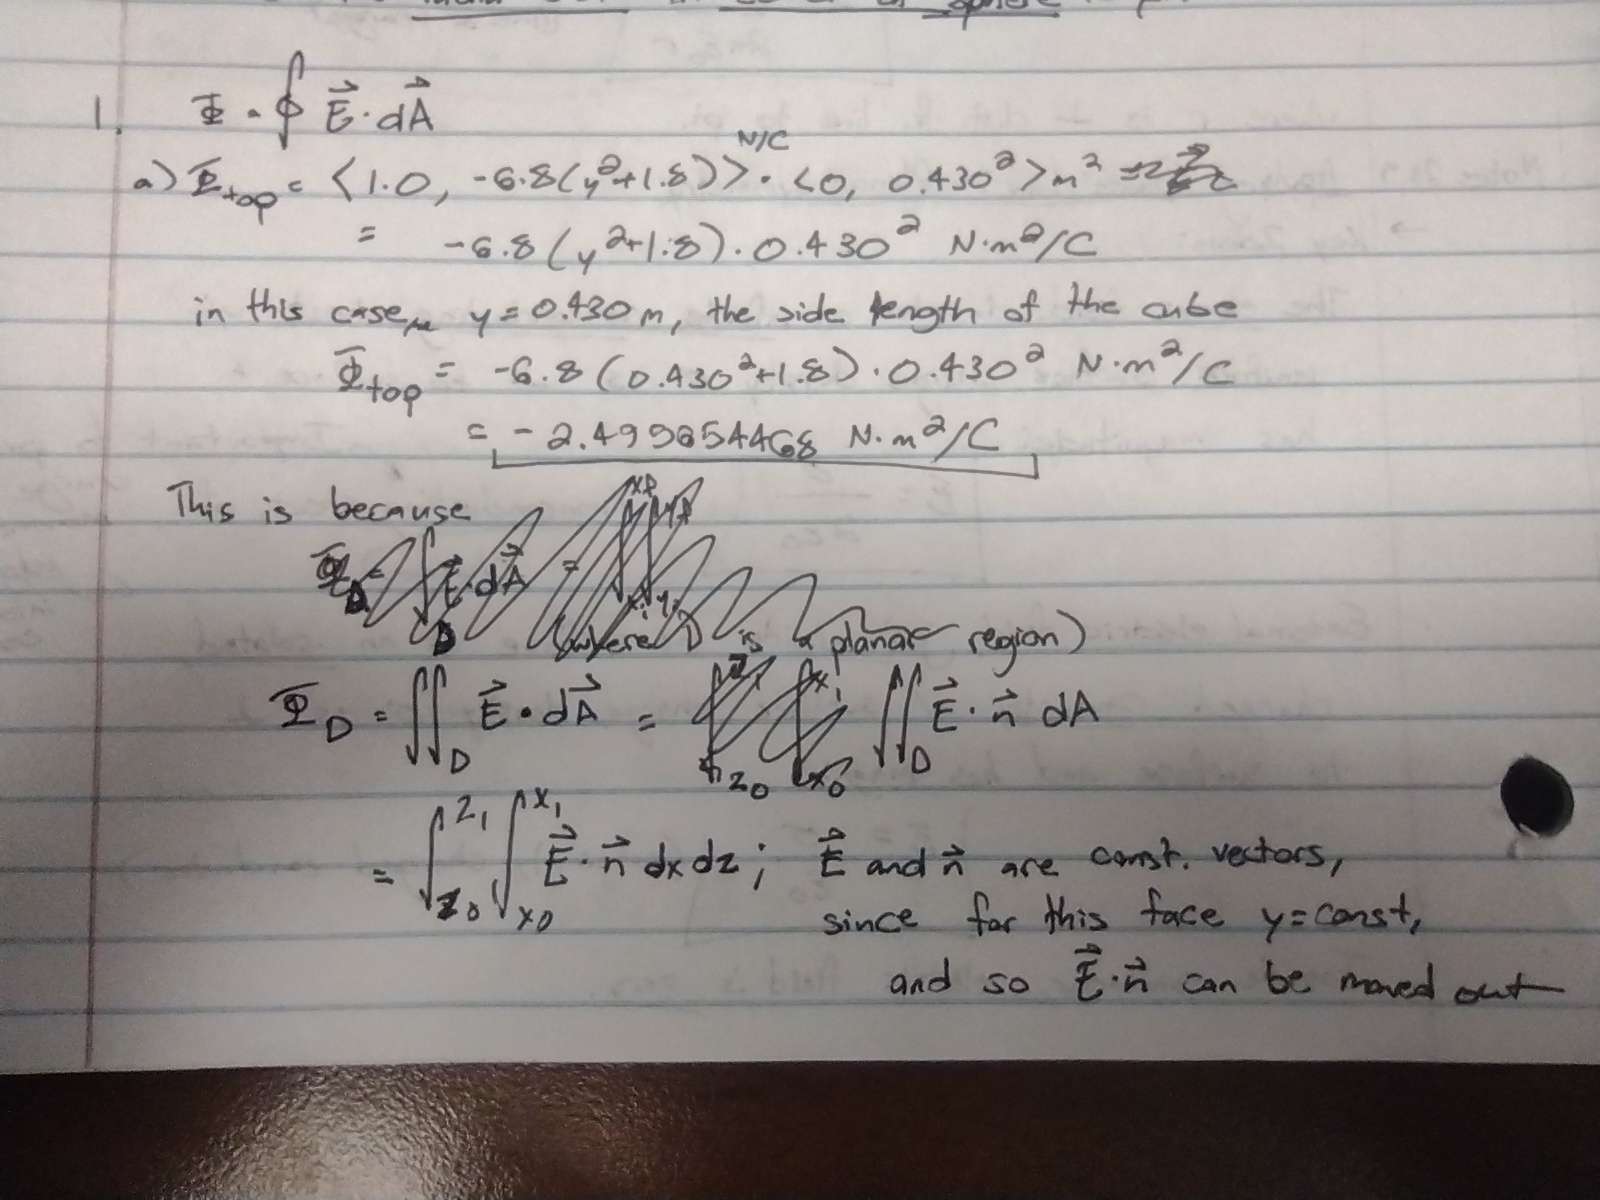 in sphere
1. Φ = ∮ E⃗ · dA⃗
N/C
a) Φtop = <1.0, -6.8(y²+1.8)> · <0, 0.430²> m²
= -6.8(y²+1.8) · 0.430² N·m²/C
in this case, y = 0.430 m, the side length of the cube
Φtop = -6.8(0.430²+1.8) · 0.430² N·m²/C
= -2.499654468 N·m²/C
This is because
E⃗ · dA⃗ =
(where D is a planar region)
Φ_D = ∬_D E⃗ · dA⃗ = ∬_D E⃗ · n⃗ dA
= ∫_{z0}^{z1} ∫_{x0}^{x1} E⃗ · n⃗ dx dz ; E⃗ and n⃗ are const. vectors,
since for this face y = const,
and so E⃗·n⃗ can be moved out